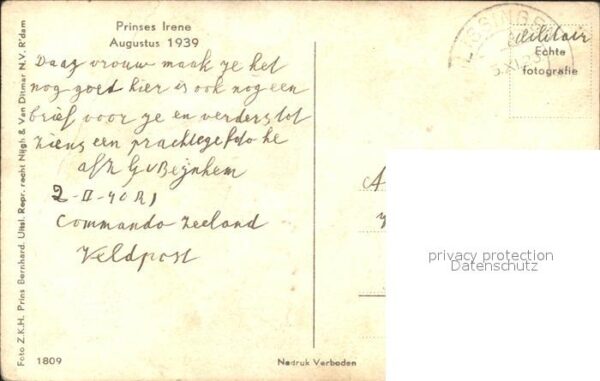 Prinses Irene
Augustus 1939
Daag vrouw maak je het
nog goed hier is ook nog een
brief voor je en verders tot
ziens een prachtege foto he
afz G v Beijnhem
2-II-40 R1
Commando Zeeland
Veldpost
Foto Z.K.H. Prins Bernhard. Uitsl. Repr. recht Nijgh & Van Ditmar N.V. R'dam
1809
Nadruk Verboden
VLISSINGEN
XI
Militair
Echte
fotografie
A
privacy protection
Datenschutz